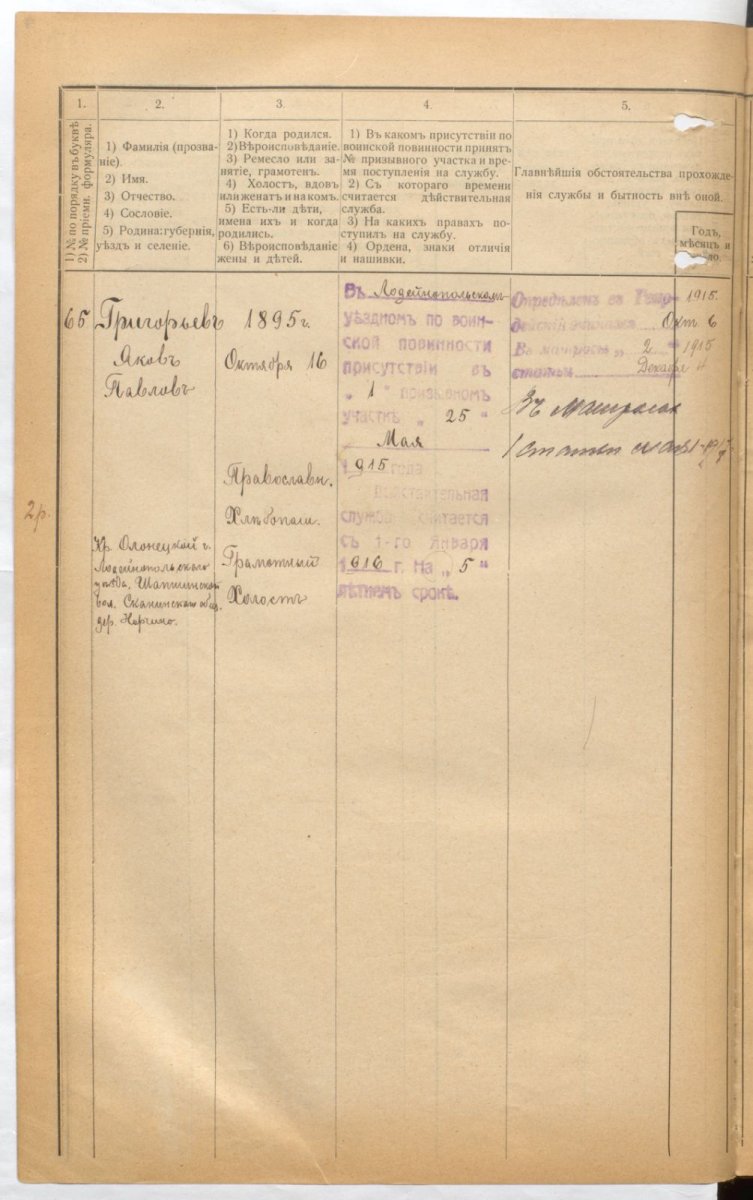 1.
2.
3.
4.
5.
1) № по порядку въ буквѣ
2) № пріемн. формуляра.
1) Фамилія (прозва-
ніе).
2) Имя.
3) Отчество.
4) Сословіе.
5) Родина: губернія,
уѣздъ и селеніе.
1) Когда родился.
2) Вѣроисповѣданіе.
3) Ремесло или за-
нятіе, грамотенъ.
4) Холостъ, вдовъ
или женатъ и на комъ.
5) Есть-ли дѣти,
имена ихъ и когда
родились.
6) Вѣроисповѣданіе
жены и дѣтей.
1) Въ какомъ присутствіи по
воинской повинности принятъ
№ призывного участка и вре-
мя поступленія на службу.
2) Съ котораго времени
считается дѣйствительная
служба.
3) На какихъ правахъ по-
ступилъ на службу.
4) Ордена, знаки отличія
и нашивки.
Главнѣйшія обстоятельства прохожде-
нія службы и бытность внѣ оной.
Годъ,
мѣсяцъ и
65
Григорьевъ
Яковъ
Павловъ
Кр. Олонецкой г.
Лодейнопольскаго
уѣзда,
вол.
дер.
1895 г.
Октября 16
Православн.
Хлѣбопаш.
Грамотный
Холостъ
Въ Лодейнопольскомъ
уѣздномъ по воин-
ской повинности
присутствіи въ
„ 1 “ призывномъ
участкѣ „ 25 “
Мая
1915 года
Дѣйствительная
служба считается
съ 1-го Января
1916 г. На „ 5 “
лѣтнемъ срокѣ.
Опредѣленъ въ
1915.
Окт 6
Въ матросы „ 2 “
1915
статьи
Декабря 4
Въ Матросы
1 статьи
2 р.